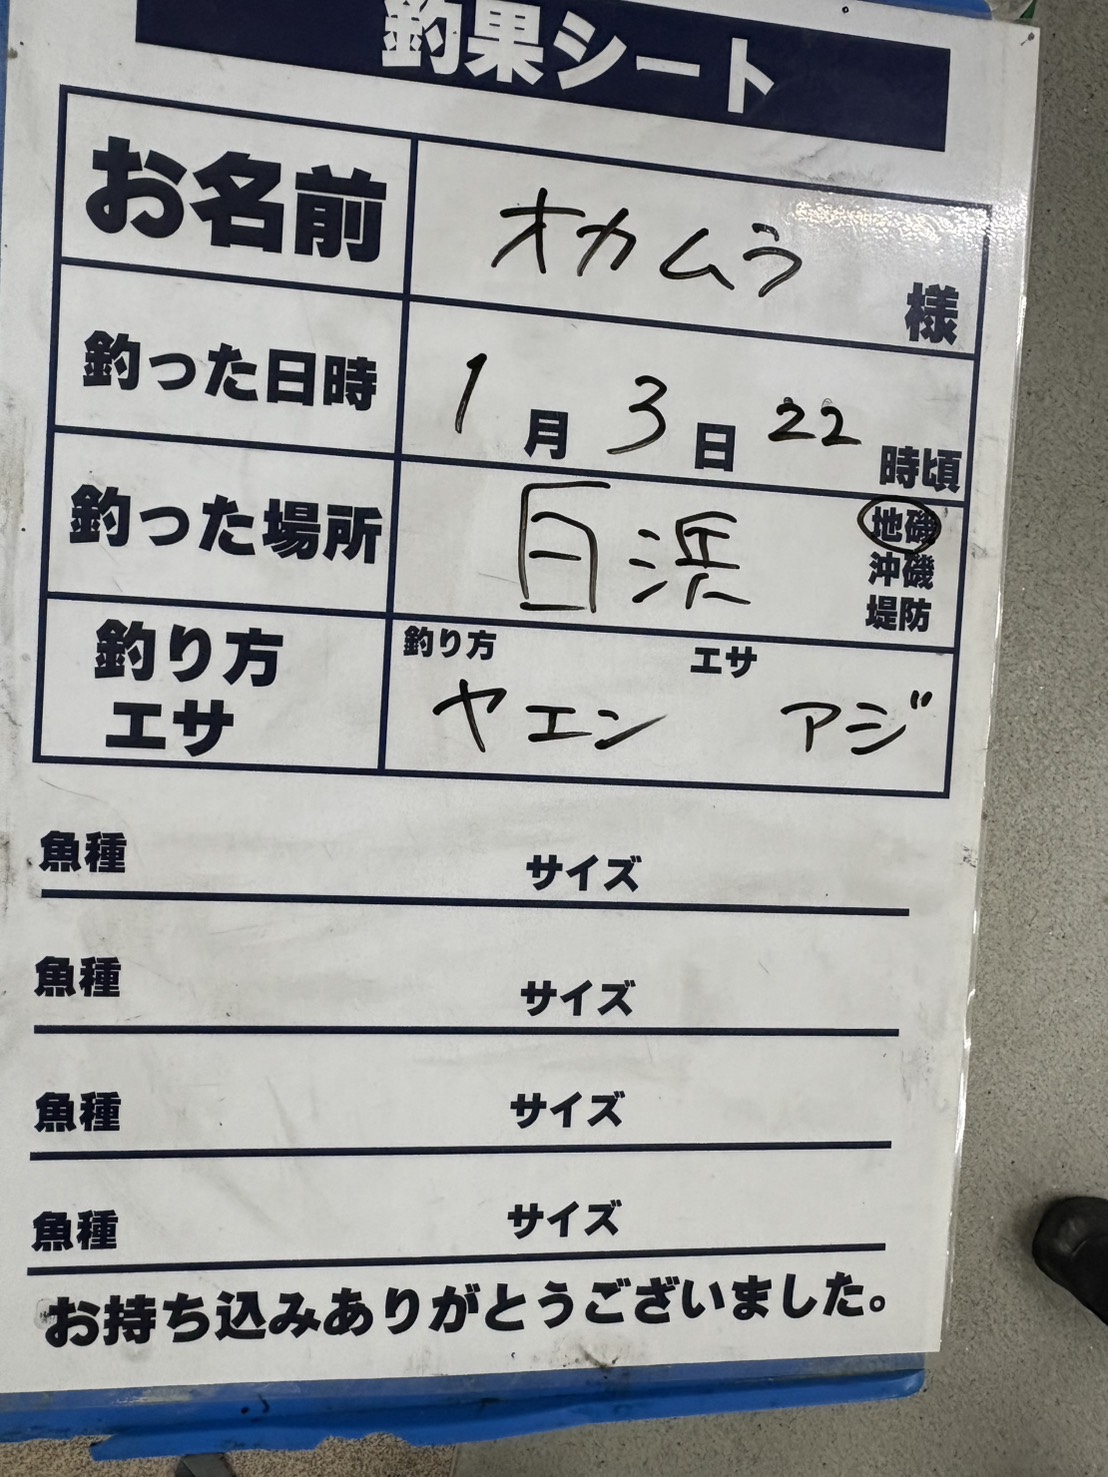 釣果シート
お名前 オカムラ 様
釣った日時 1月3日22時頃
釣った場所 白浜 地磯
沖磯
堤防
釣り方 エサ
釣り方
エサ
ヤエン アジ
魚種 サイズ
魚種 サイズ
魚種 サイズ
魚種 サイズ
お持ち込みありがとうございました。